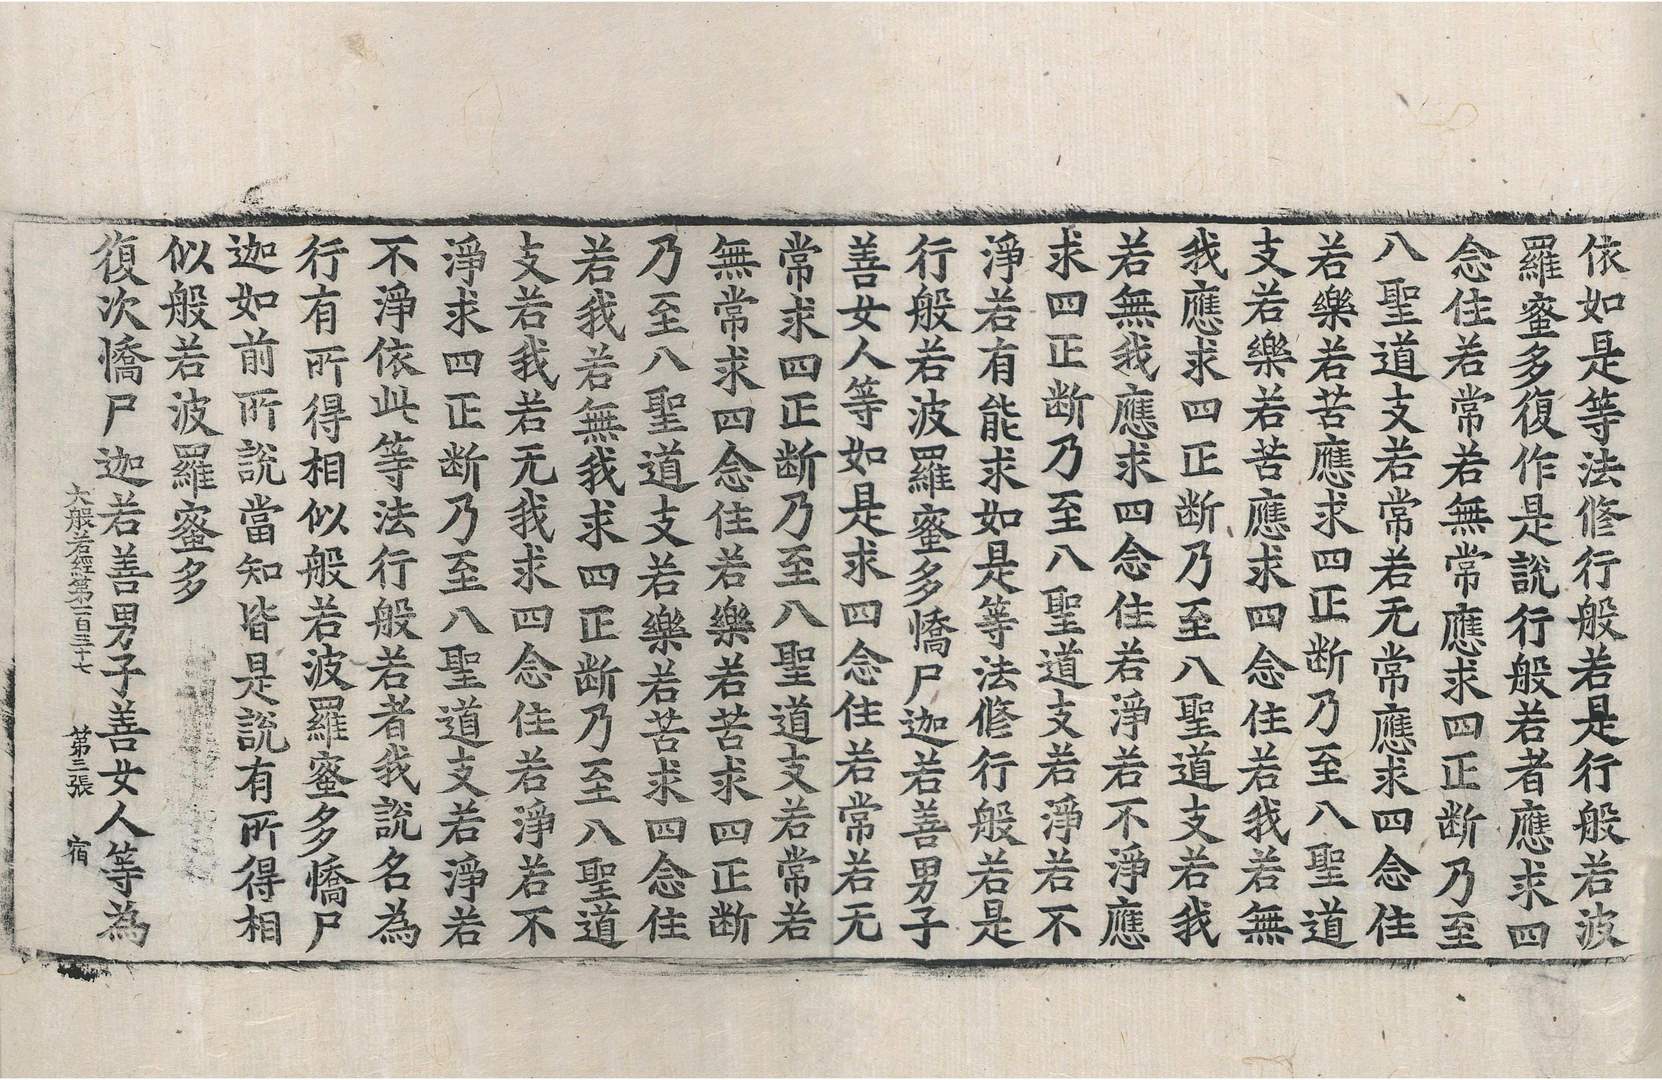 依如是等法修行般若是行般若波
羅蜜多復作是說行般若者應求四
念住若常若無常應求四正断乃至
八聖道支若常若无常應求四念住
若樂若苦應求四正断乃至八聖道
支若樂若苦應求四念住若我若無
我應求四正断乃至八聖道支若我
若無我應求四念住若淨若不淨應
求四正断乃至八聖道支若淨若不
淨若有能求如是等法修行般若是
行般若波羅蜜多憍尸迦若善男子
善女人等如是求四念住若常若无
常求四正断乃至八聖道支若常若
無常求四念住若樂若苦求四正断
乃至八聖道支若樂若苦求四念住
若我若無我求四正断乃至八聖道
支若我若无我求四念住若淨若不
淨求四正断乃至八聖道支若淨若
不淨依此等法行般若者我說名為
行有所得相似般若波羅蜜多憍尸
迦如前所說當知皆是說有所得相
似般若波羅蜜多
復次憍尸迦若善男子善女人等為
大般若經第一百三十七 苐三張 宿